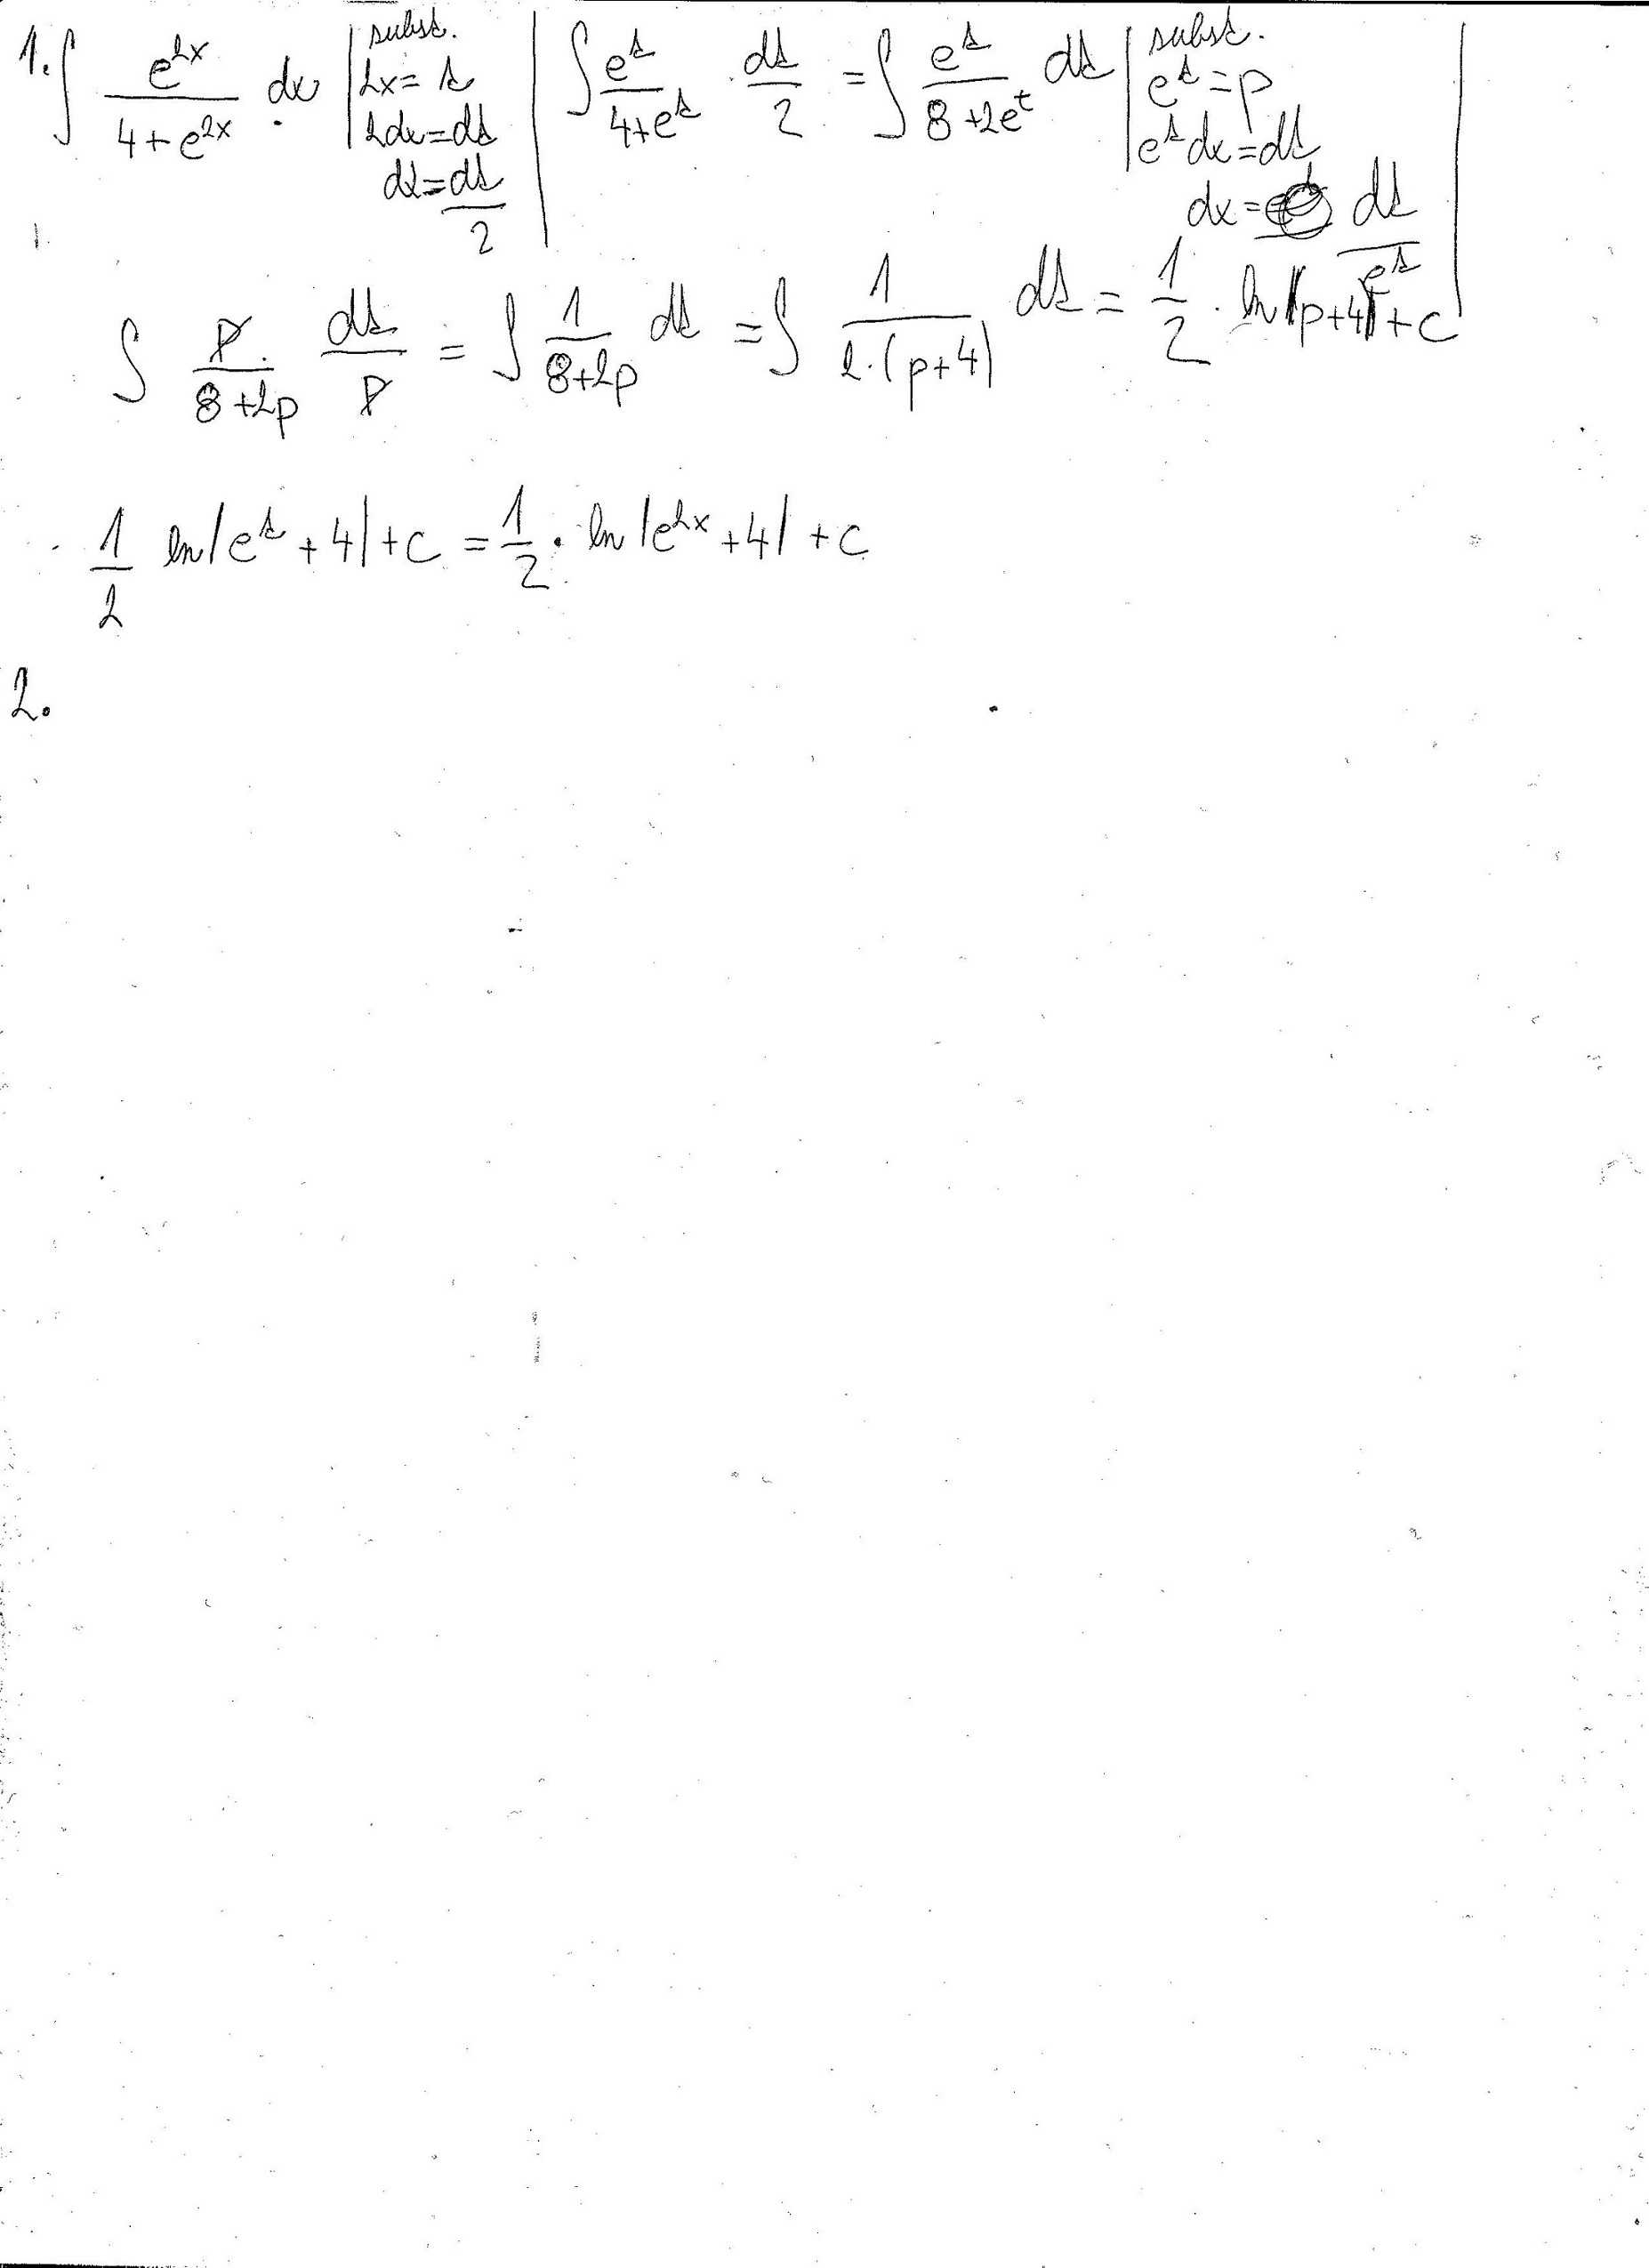 1. ∫ e^{2x} / (4+e^{2x}) · dx | subst. 2x = t 2dx = dt dx = dt/2 | ∫ e^t / (4+e^t) · dt/2 = ∫ e^t / (8+2e^t) dt | subst. e^t = p e^t dx = dt dx = dt/e^t |
∫ p / (8+2p) · dt/p = ∫ 1 / (8+2p) dt = ∫ 1 / (2·(p+4)) dt = 1/2 · ln|p+4| + c
1/2 ln|e^t+4| + c = 1/2 · ln|e^{2x}+4| + c
2.